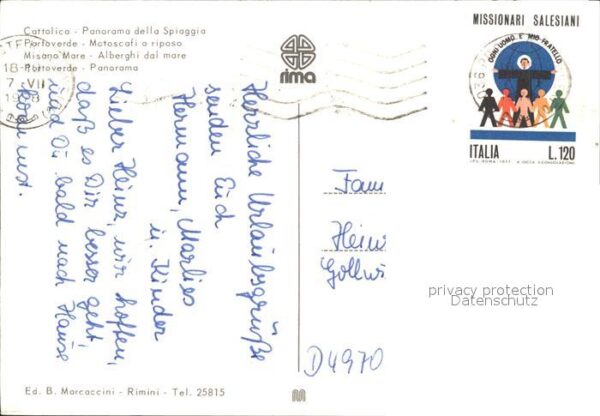 Cattolica - Panorama della Spiaggia
Portoverde - Motoscafi a riposo
Misano Mare - Alberghi dal mare
Portoverde - Panorama
rima
MISSIONARI SALESIANI
OGNI UOMO È MIO FRATELLO
ITALIA L.120
18-
7 VII
Herrliche Urlaubsgrüße
senden Euch
Hermann, Marlies
u. Kinder
Lieber Heinz, wir hoffen,
daß es Dir besser geht,
und Du bald nach Hause
kommst.
Fam
Heinz
privacy protection
Datenschutz
D4970
Ed. B. Marcaccini - Rimini - Tel. 25815